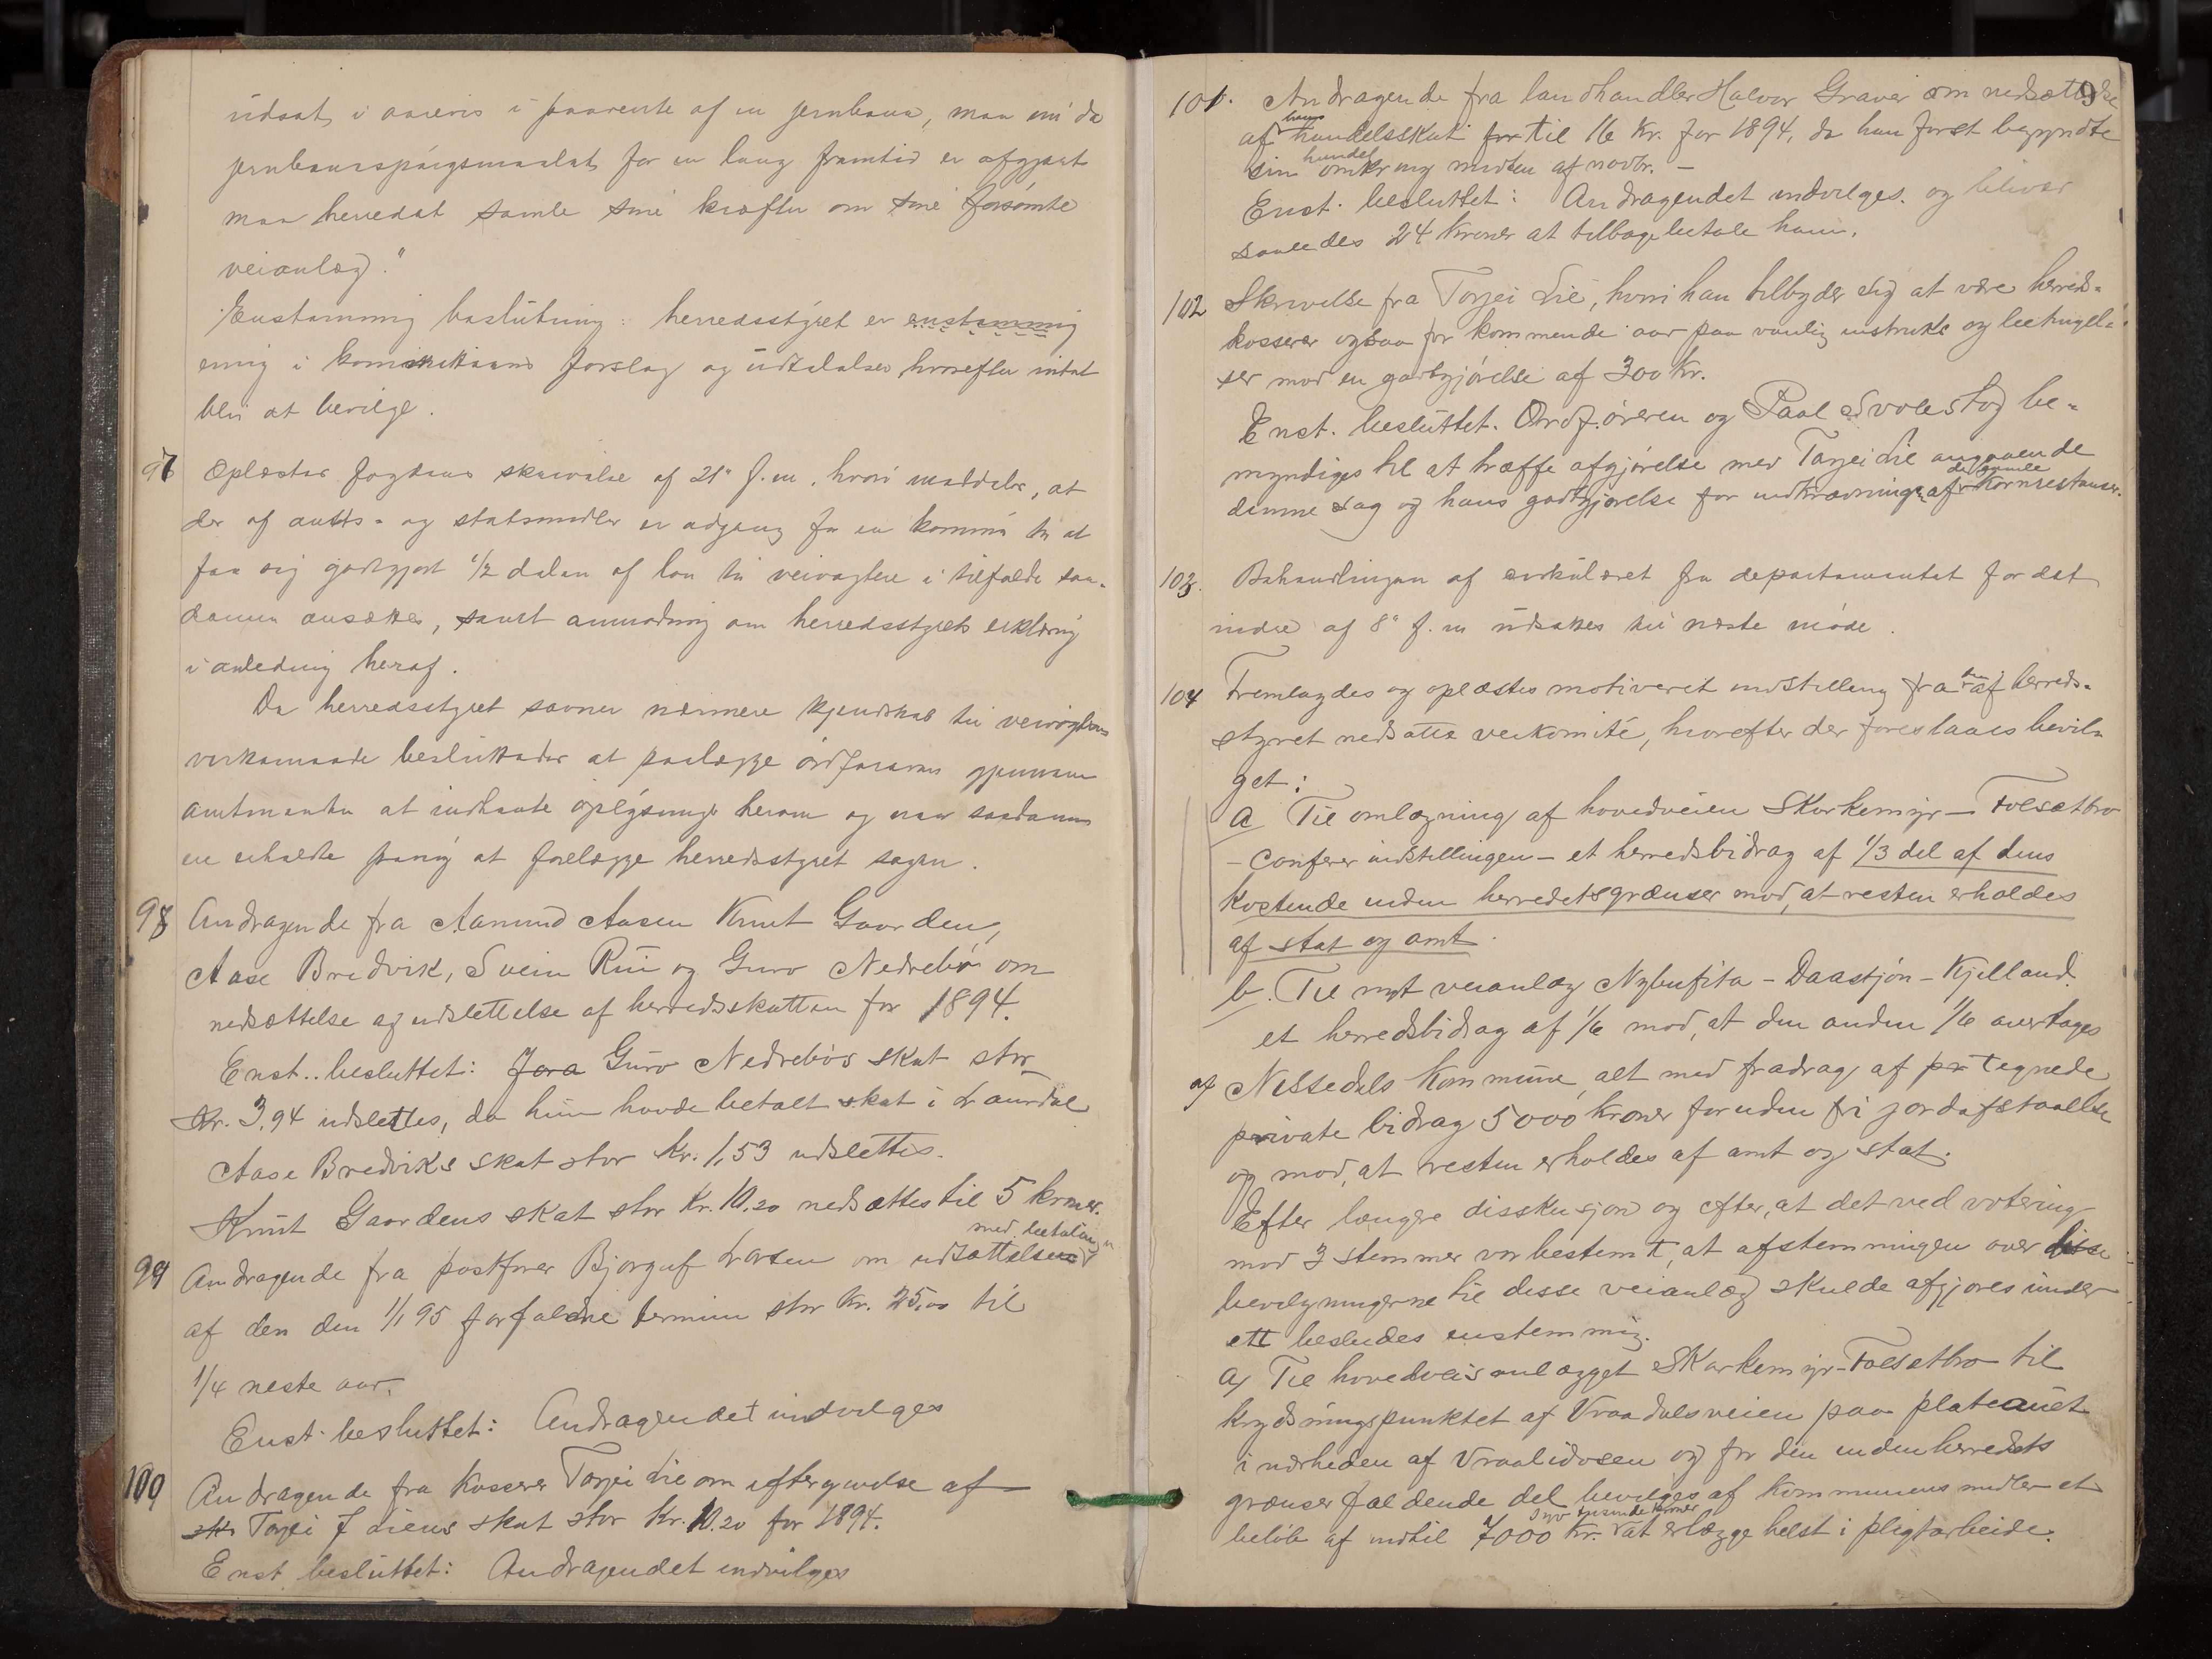 udsat i aarevis i paavente af en jernbane, maa nu da
jernbanespørgsmaalet for en lang framtid er afgjort
maa herredet samle sine kræfter om sine forsømte
veianlæg."
Enstemmig beslutning: herredsstyret er enstemmig
enig i komiteens forslag og udtalelser hvorefter intet
bli at bevilge.
97 Oplæstes fogdens skrivelse af 21' f.m. hvori meddeles, at
der af amts- og statsmidler er adgang for en kommune til at
faa sig godtgjort 1/2 delen af løn til veivogtere i tilfælde saa-
danne ansættes, samt anmodning om herredsstyrets erklæring
i anledning heraf.
Da herredsstyret savner nærmere kjendskab til veivogternes
virkemaade besluttedes at paalægge ordføreren gjennem
amtmanden at indhente oplysninger herom og naar saadanne
er erholdte paany at forelægge herredsstyret sagen.
98 Andragende fra Aamund Aasen Knut Gaarden,
Aase Bredvik, Svein Rui og Guro Nedrebø om
nedsættelse og udslettelse af herredsskatten for 1894.
Enst. besluttet: Jora Guro Nedrebøs skat stor
Kr. 3,94 udslettes, da hun havde betalt skat i Laurdal
Aase Bredviks skat stor kr. 1,53 udslettes.
Knut Gaardens skat stor Kr. 10.20 nedsættes til 5 kroner.
99 Andragende fra postfører Bjorguf Larsen om udsættelse med betalingen
af den den 1/1 95 forfaldne termin stor kr. 25,00 til
1/4 neste aar.
Enst. besluttet: Andragendet indvilges
100 Andragende fra kasserer Torjei Lie om eftergivelse af
sk Torjei J Liens skat stor Kr. 10.20 for 1894.
Enst besluttet: Andragendet indvilges
9
101. Andragende fra landhandler Halvor Graver om nedsættelse
af hans handelsskat for til 16 kr. for 1894, da han først begyndte
sin handel omkring midten af novbr. –
Enst. besluttet: Andragendet indvilges. og bliver
saaledes 24 kroner at tilbagebetale ham.
102 Skrivelse fra Torjei Lie, hvori han tilbyder sig at være herreds-
kasserer ogsaa for kommende aar paa vanlig instruks og betingel-
ser mod en godtgjørelse af 300 kr.
Enst. besluttet. Ordføreren og Paal Svolestog be-
myndiges til at træffe afgjørelse med Torjei Lie angaaende
denne sag og hans godtgjørelse for indkrævning af de gamle kornrestanser.
103. Behandlingen af cirkulæret fra departementet for det
indre af 8' f.m udsættes til næste møde.
104 Fremlagdes og oplæstes motiveret indstilling fra den af herreds-
styret nedsatte veikomité, hvorefter der foreslaaes bevil-
get:
a Til omlægning af hovedveien Skarkemyr – Folsætbro
– conferer indstillingen – et herredsbidrag af 1/3 del af dens
kostende inden herredets grænser mod, at resten erholdes
af stat og amt.
b. Til nyt veianlæg Nybufita – Daastjøn – Kjelland.
et herredsbidrag af 1/6 mod, at den anden 1/6 overtages
af Nissedals kommune, alt med fradrag af på tegnede
private bidrag 5000 kroner foruden fri jordafstaaelse
og mod, at resten erholdes af amt og stat.
Efter længere disskusjon og efter, at det ved votering
mod 3 stemmer var bestemt, at afstemningen over disse
bevilgningerne til disse veianlæg skulde afgjøres under
ett besludes enstemmig.
a) Til hovedveisanlægget Skarkemyr-Folsætbro til
krydsningspunktet af Vraadalsveien paa plateauet
i nærheden af Vraaliosen og for den inden herredets
grænser faldende del bevilges af kommunens midler et
beløb af indtil 7000 kr. syv tusinde kroner at erlægge helst i pligtarbeide.